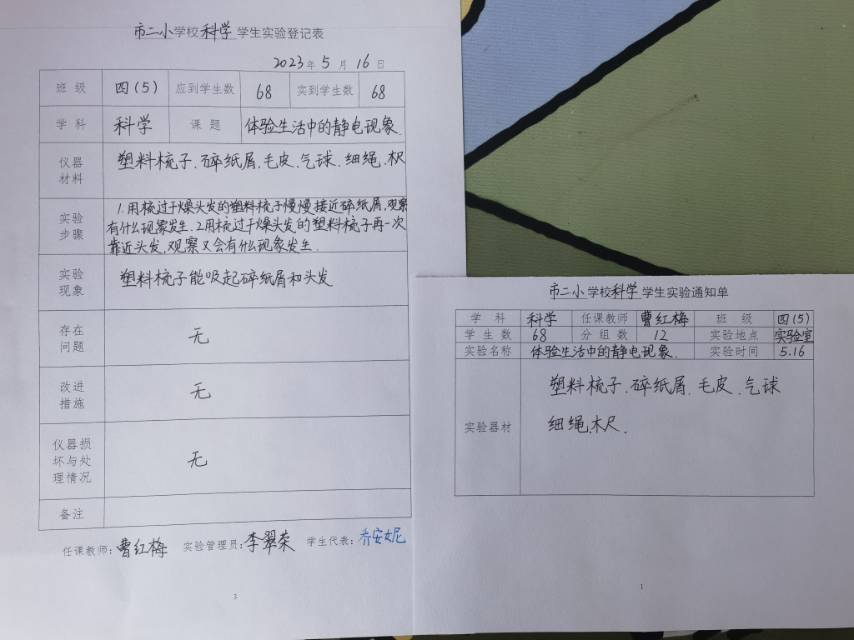 市二小学校科学学生实验登记表
2023年5月16日
班级 四(5) 应到学生数 68 实到学生数 68
学科 科学 课题 体验生活中的静电现象.
仪器材料 塑料梳子.碎纸屑.毛皮.气球.细绳.
实验步骤 1.用梳过干燥头发的塑料梳子慢慢接近碎纸屑,观察
有什么现象发生.2.用梳过干燥头发的塑料梳子再一次
靠近头发,观察又会有什么现象发生.
实验现象 塑料梳子能吸起碎纸屑和头发
存在问题 无
改进措施 无
仪器损坏与处理情况 无
备注
任课教师:曹红梅 实验管理员:李翠荣 学生代表:乔安妮
3
市二小学校科学学生实验通知单
学科 科学 任课教师 曹红梅 班级 四(5)
学生数 68 分组数 12 实验地点 实验室
实验名称 体验生活中的静电现象. 实验时间 5.16
实验器材 塑料梳子.碎纸屑.毛皮.气球
细绳.木尺.
1